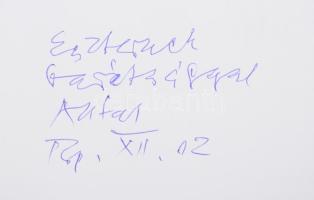 Eszternek
barátsággal
Antal
Bp. XII. 02